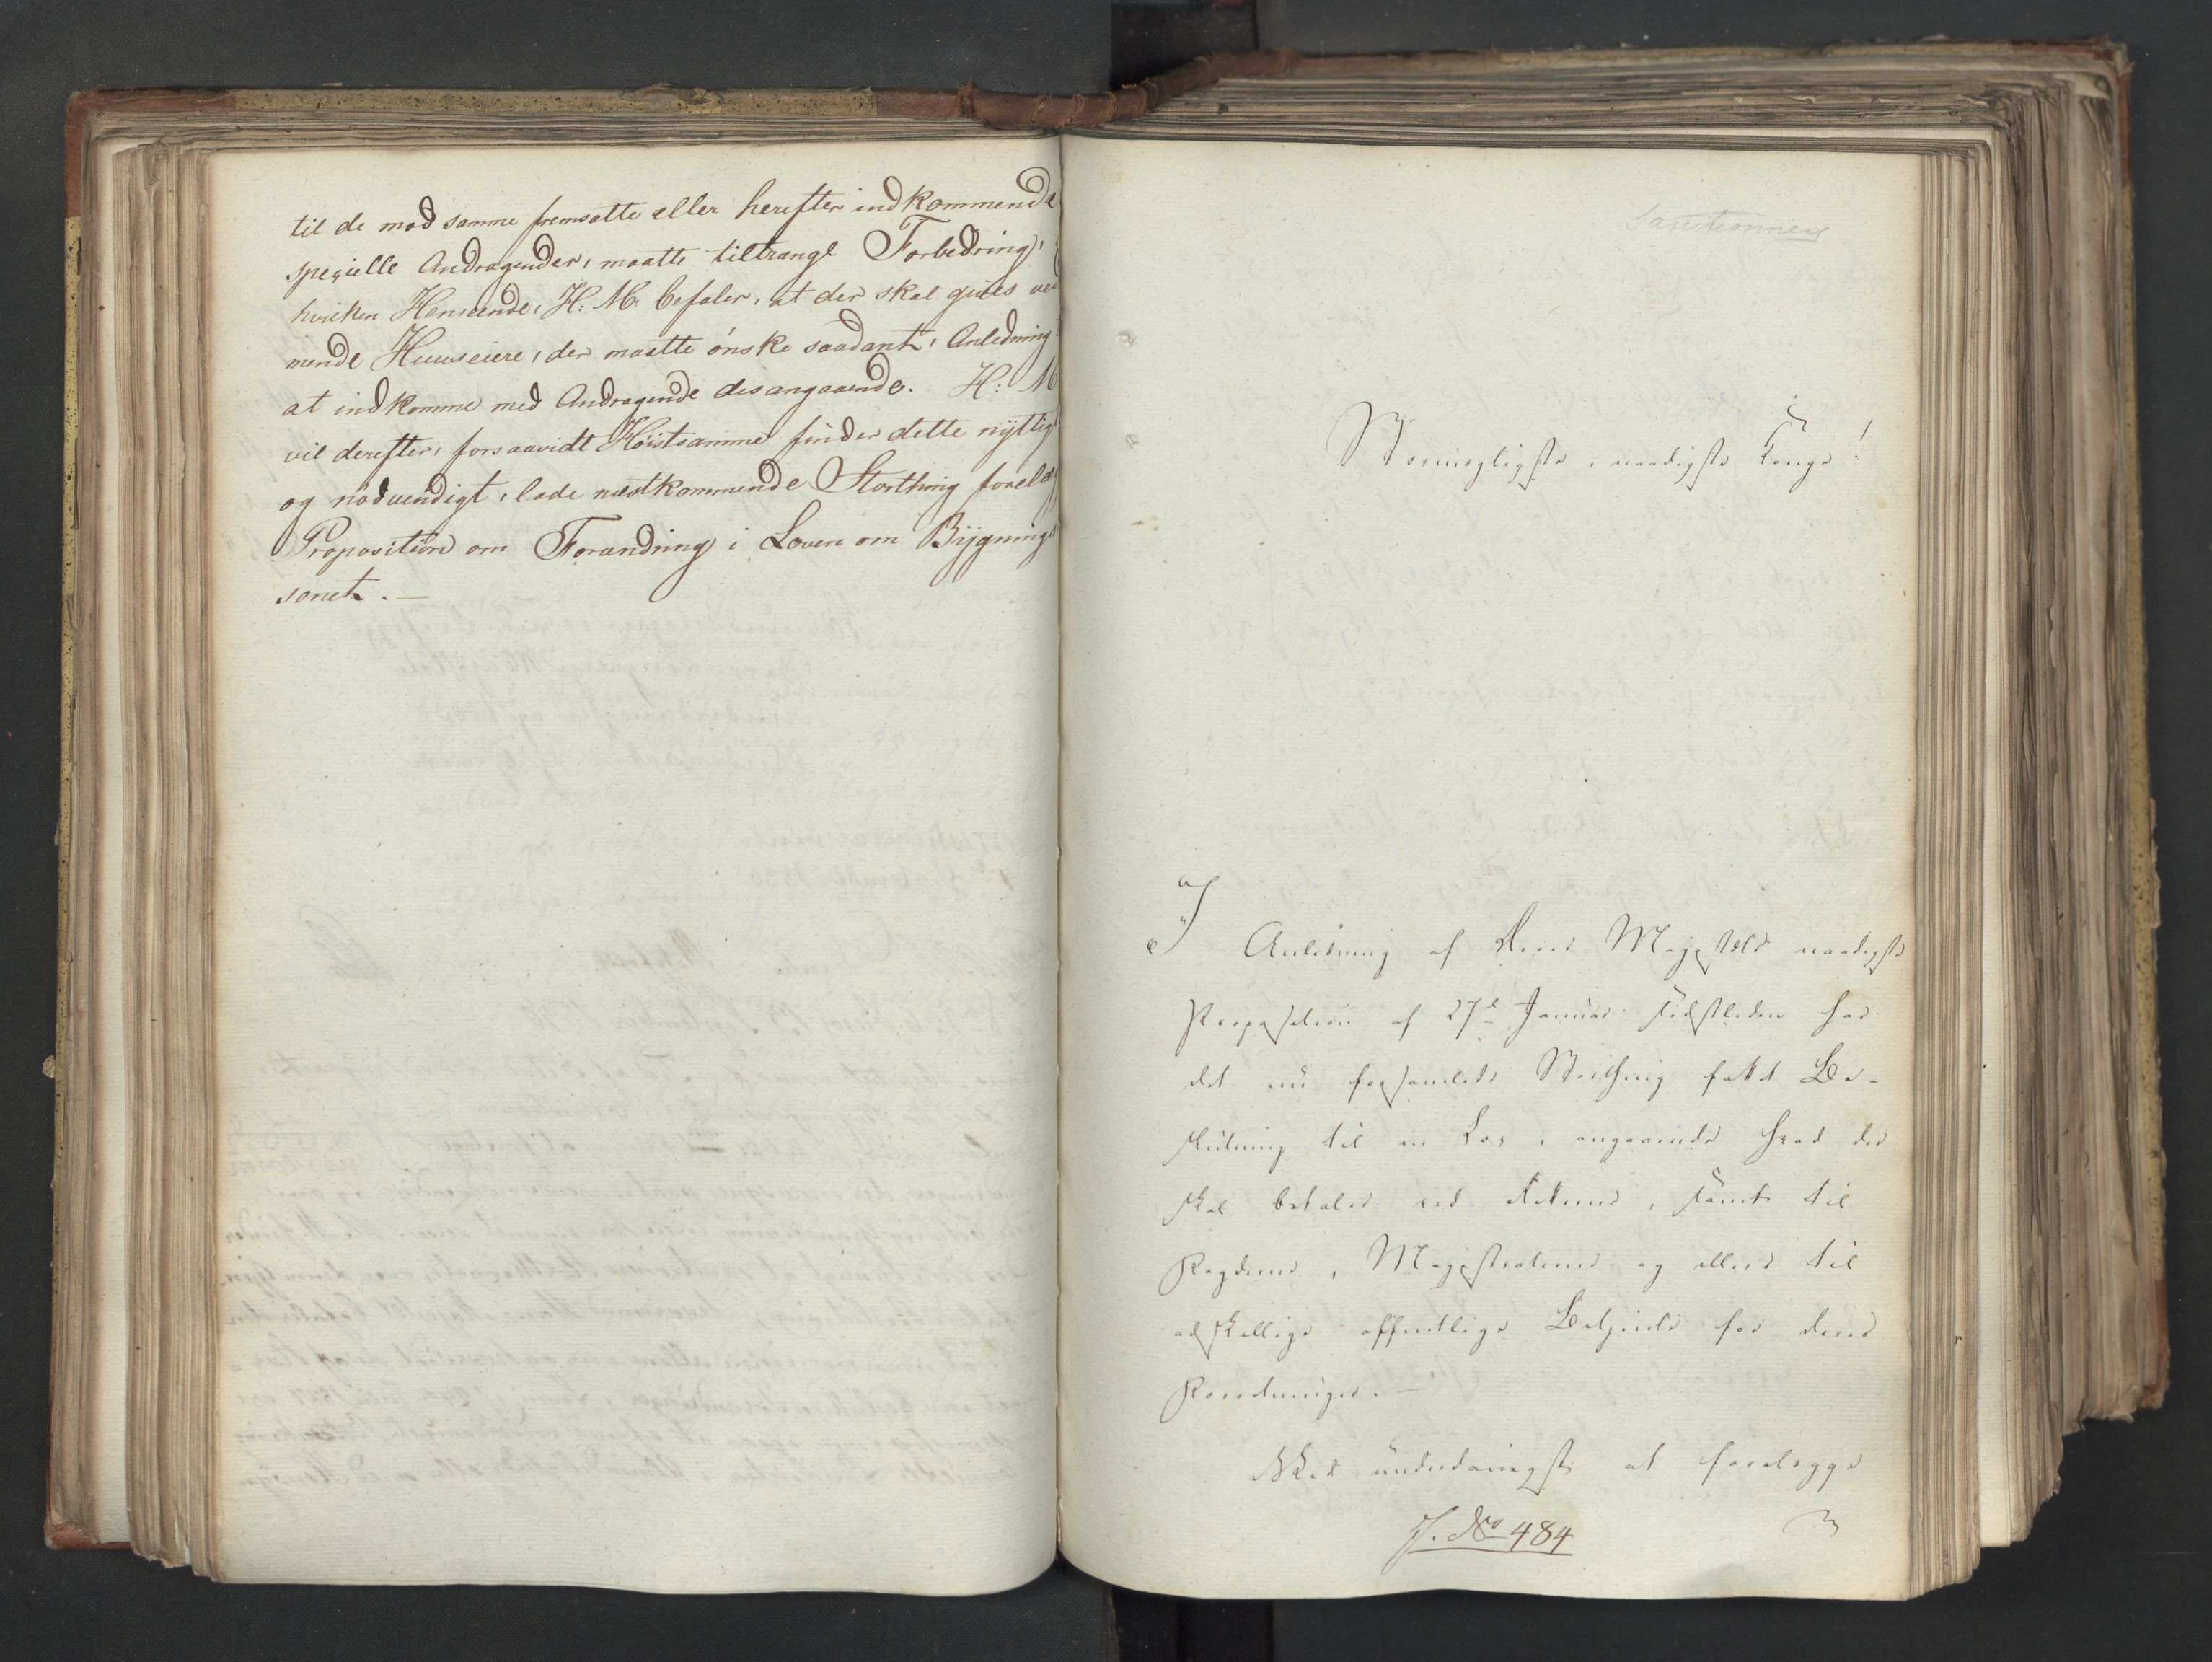 til de mod samme fremsatte eller herefter indkommende
specielle Andragender, maatte tiltrænge Forbedring, i
hvilken Henseende, H: M: befaler, at der skal gives ved
mende Huuseiere, der maatte ønske saadant, Anledning
at indkomme med Andragende desangaaende. H: M
vil derefter, forsaavidt Høistsamme finder dette nyttigt
og nødvendigt, lade næstkommende Storthing forelæg
Proposition om Forandring i Loven om Bygnings
senet. —
Sanctionneres
Stormægtigste, naadigste Konge!
I Anledning af Deres Majestæts naadigste
Proposition af 27de Januar sidstleden har
det nu forsamlede Storthing fattet Be-
slutning til en Lov, angaaende hvad der
skal betales ved Retterne, samt til
Fogderne, Magistraterne og ellers til
adskillige offentlige Betjente for deres
Forretninger. —
underdanigst at forelægge
J. No 484